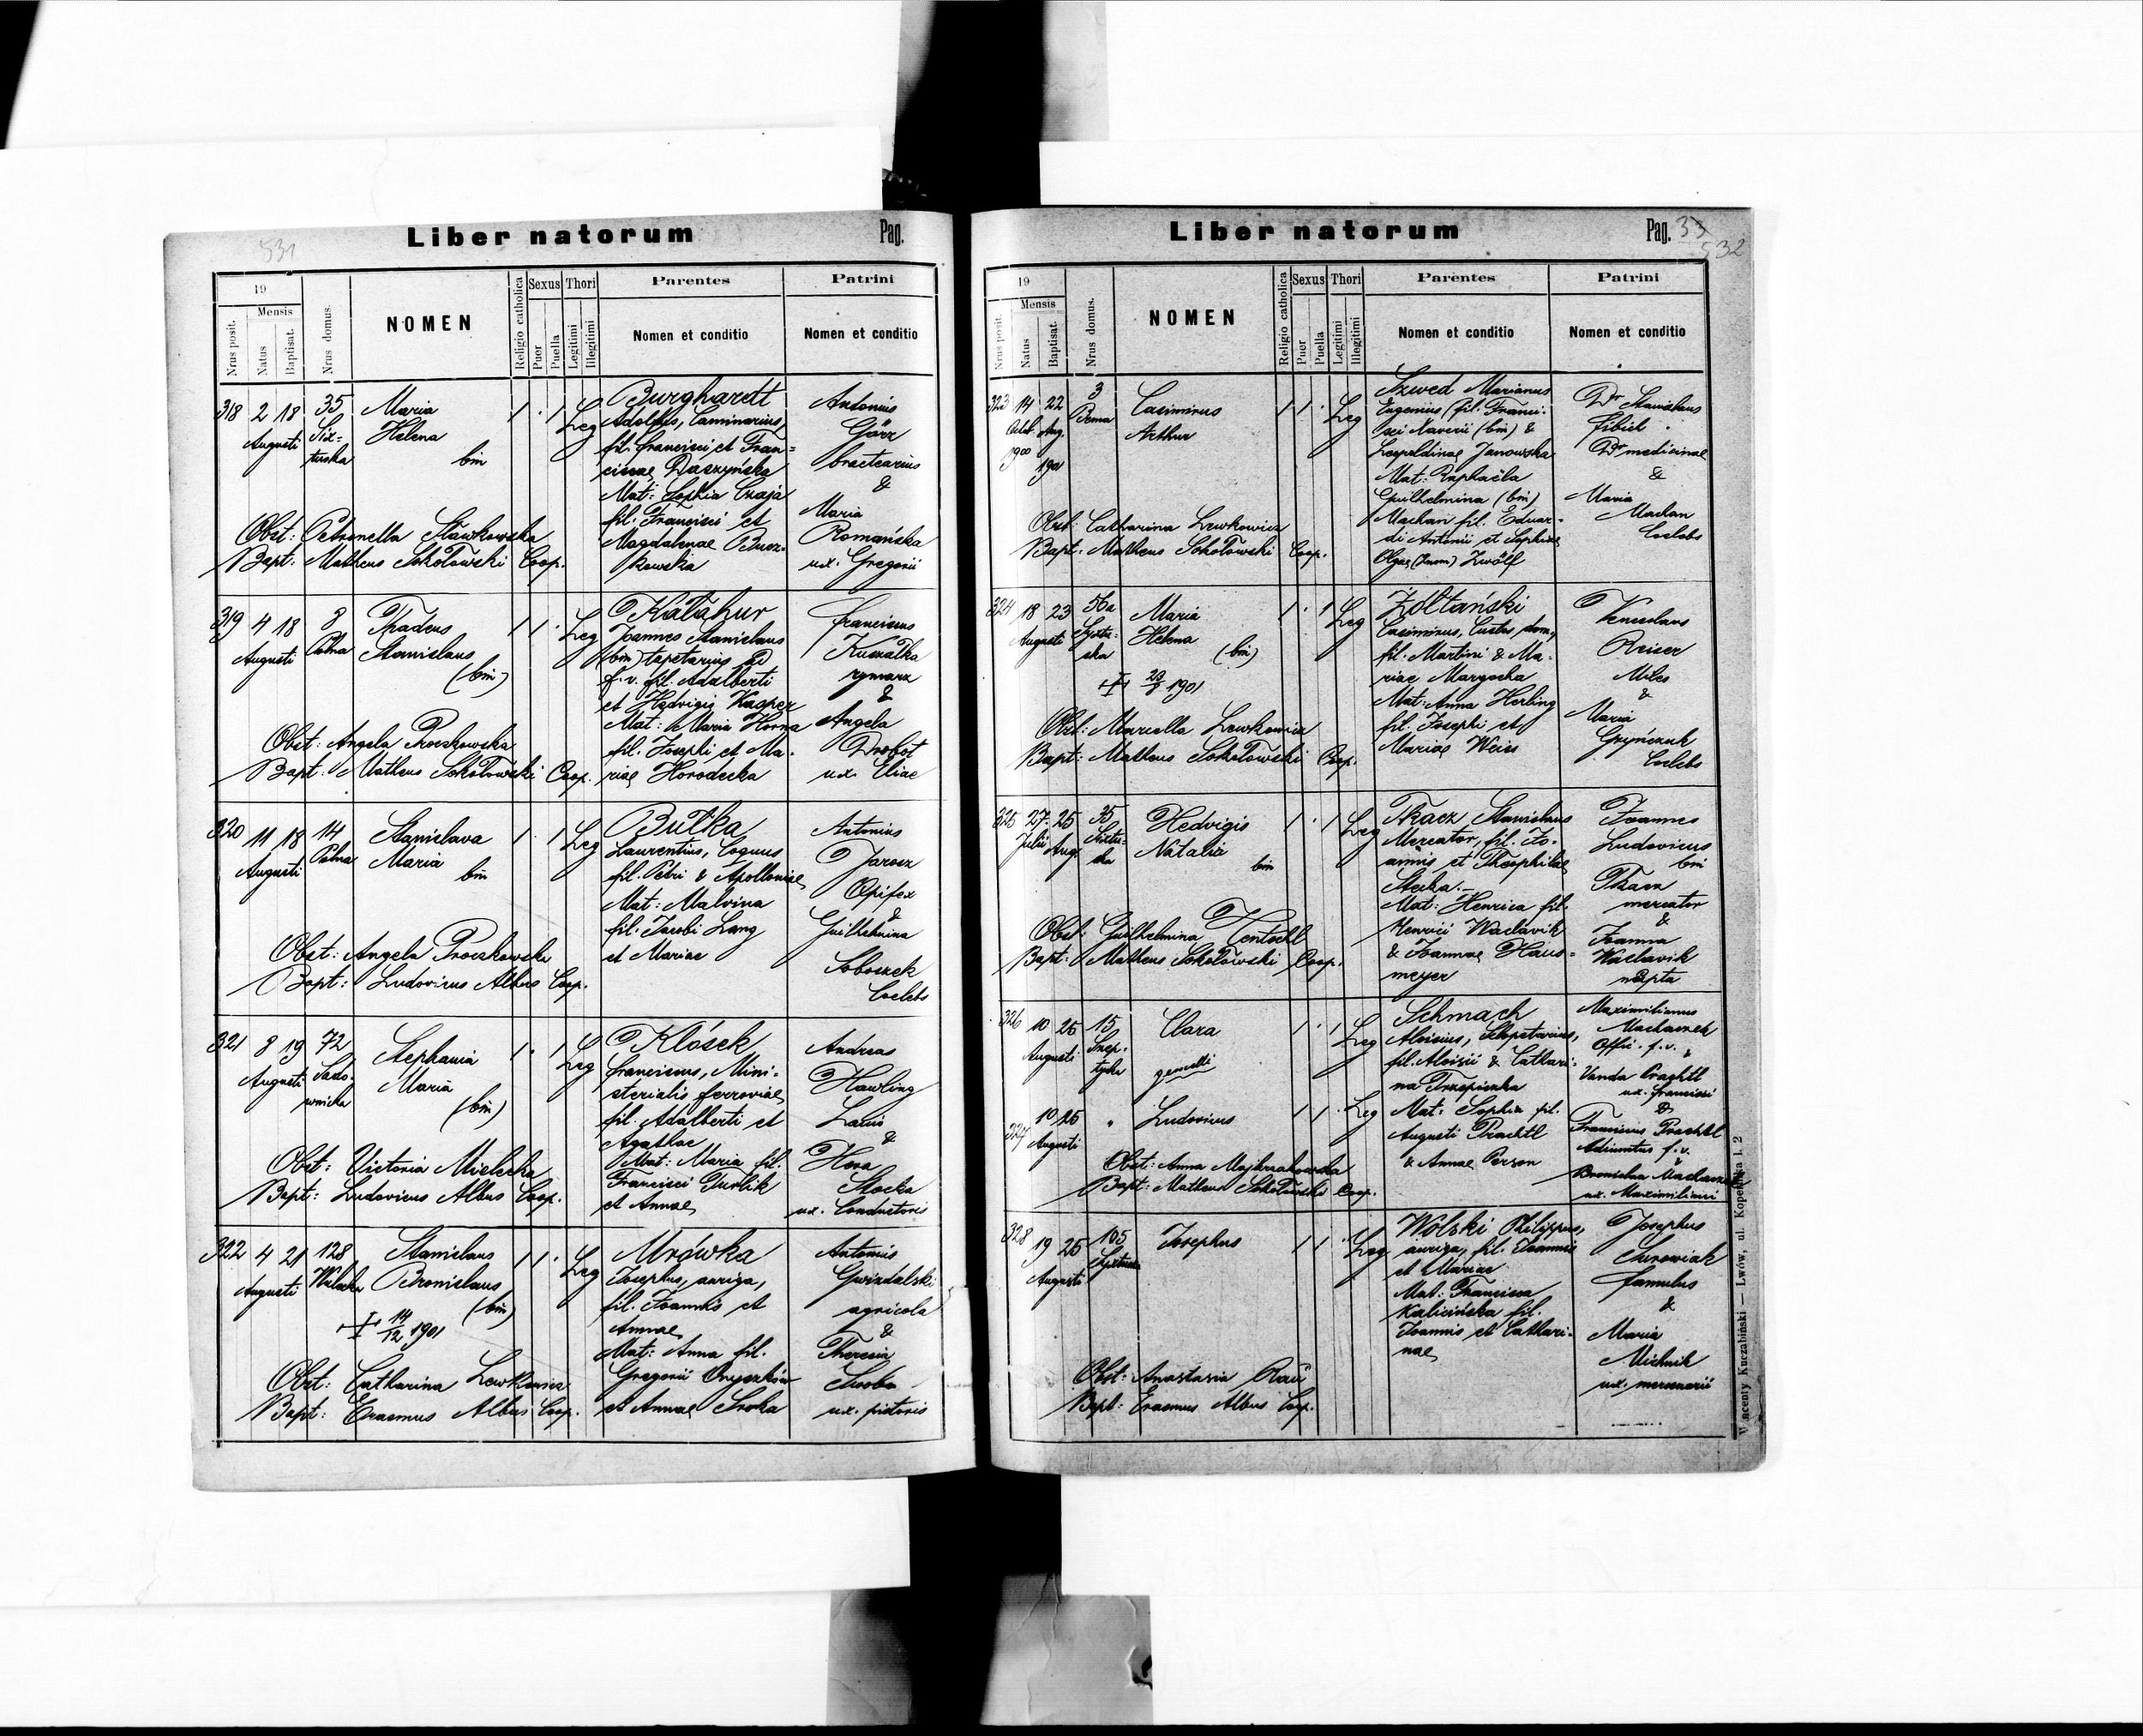 531
Liber natorum Pag.
19
Mensis
Nrus posit.
Natus
Baptisat.
Nrus domus.
NOMEN
Religio catholica
Sexus
Puer
Puella
Thori
Legitimi
Illegitimi
Parentes
Nomen et conditio
Patrini
Nomen et conditio
318 2 18 35 Maria 1 . 1 Leg Burghardt Antonius
Augusti Six- Helena Adolfus, Caminarius, Görz
tuska bin fil. Francisci et Fran= bractearius
ciscae Daszyńska &
Mat: Sophia Czaja Maria
fil. Francisci et Romańska
Obst: Petronella Sławkowska Magdalenae Bucz- ux. Gregorii
Bapt: Matheus Sokołowski Coop. kowska
319 4 18 8 Thadeus 1 1 . Leg Kałahur Franciscus
Augusti Polna Stanislaus Joannes Stanislaus Kuszałka
(bin) (bin) tapetarius ad rymarz
f. v. fil. Adalberti &
et Hedvigis Kacper Angela
Mat: Maria Horna Drobot
Obst: Angela Proczkowska fil. Josephi et Ma- ux. Eliae
Bapt: Matheus Sokołowski Coop. riae Horodecka
320 11 18 14 Stanislava 1 . 1 Leg Bułka Antonius
Augusti Polna Maria Laurentius, Coquus Jarosz
bin fil. Petri & Apolloniae Opifex
Mat: Malvina &
fil. Jacobi Lang Guilhelmina
Obst: Angela Proczkowska et Mariae Soboszek
Bapt: Ludovicus Albus Coop. Coelebs
321 8 19 72 Stephania 1 . 1 Leg Kłósek Andreas
Augusti Sado- Maria Franciscus, Mini- Hawling
wnicka (bin) sterialis ferroviae
fil. Adalberti et &
Agathae
Obst: Victoria Mielecka Mat: Maria fil. Stocka
Bapt: Ludovicus Albus Coop. Francisci Gurlik ux. Conductoris
et Annae
322 4 21 128 Stanislaus 1 1 . Leg Mrówka Antonius
Augusti Bronislaus Josephus, auriga, Gwizdalski
(bin) fil. Joannis et agricola
14/12 1901 Annae &
Mat: Anna fil. Theresia
Obst: Catharina Lewkowicz Gregorii Onyszków
Bapt: Erasmus Albus Coop. et Annae Sroka ux. pistoris
Liber natorum Pag. 33
532
19
Mensis
Nrus posit.
Natus
Baptisat.
Nrus domus.
NOMEN
Religio catholica
Sexus
Puer
Puella
Thori
Legitimi
Illegitimi
Parentes
Nomen et conditio
Patrini
Nomen et conditio
323 14 22 3 Casimirus 1 1 . Leg Szwed Marianus Dr Stanislaus
Aug. Bema Arthur Eugenius (fil. Franci- Fibich
1900 1901 sci Xaverii (bin) & Dr medicinae
Leopoldinae Janowska &
Mat: Raphaëla Maria
Guilhelmina (bin) Machan
Obst: Catharina Lewkowicz Machan fil. Eduar- Coelebs
Bapt: Matheus Sokołowski Coop. di Antonii et Sophiae
Olgae Zwölf
324 18 23 56a Maria 1 . 1 Leg Żółtański Venceslaus
Augusti Sixtu- Helena Casimirus, Custos dom., Reiser
ska (bin) fil. Martini & Ma- Miles
riae Margocha &
1901 Mat: Anna Herbing Maria
fil. Josephi et Gryńczuk
Obst: Marcella Lewkowicz Mariae Weiss Coelebs
Bapt: Matheus Sokołowski Coop.
325 27 25 35 Hedvigis 1 . 1 Leg Tkacz Stanislaus Joannes
Julii Aug. Sixtu- Natalia Mercator, fil. Jo- Ludovicus
ska bin annis et Theophilae bin
Stecka. Tkacz
Mat: Henrica fil. mercator
Henrici Waclavik &
Obst: Guilhelmina Jentschl & Joannae Haus= Joanna
Bapt: Matheus Sokołowski Coop. meyer Waclavik
nupta
326 10 25 15 Clara 1 . 1 Leg Schmach Maximilianus
Augusti Szep- Aloisius, Sclopetarius, Machaczek
tycka gemelli fil. Aloisii & Cathari- Offic. f. v. &
na Trzepiszka Vanda Prachtl
ux. Francisci
327 10 25 " Ludovicus 1 1 . Leg Mat: Sophia fil. &
Augusti Augusti Prachtl Franciscus Prachtl
& Annae Person Adiunctus f. v.
Obst: Anna Majkrzakowska &
Bapt: Matheus Sokołowski Coop. Bronislava Machaczek
ux. Maximiliani
328 19 25 105 Josephus 1 1 . Leg Wolski Philippus, Josephus
Augusti auriga, fil. Joannis Surowiak
et Mariae famulus
Mat: Francisca &
Kalicińska fil. Maria
Joannis et Cathari- Michnik
Obst: Anastasia Rau nae ux. mercenarii
Bapt: Erasmus Albus Coop.
Wincenty Kuczabiński — Lwów, ul. Kopernika l. 2